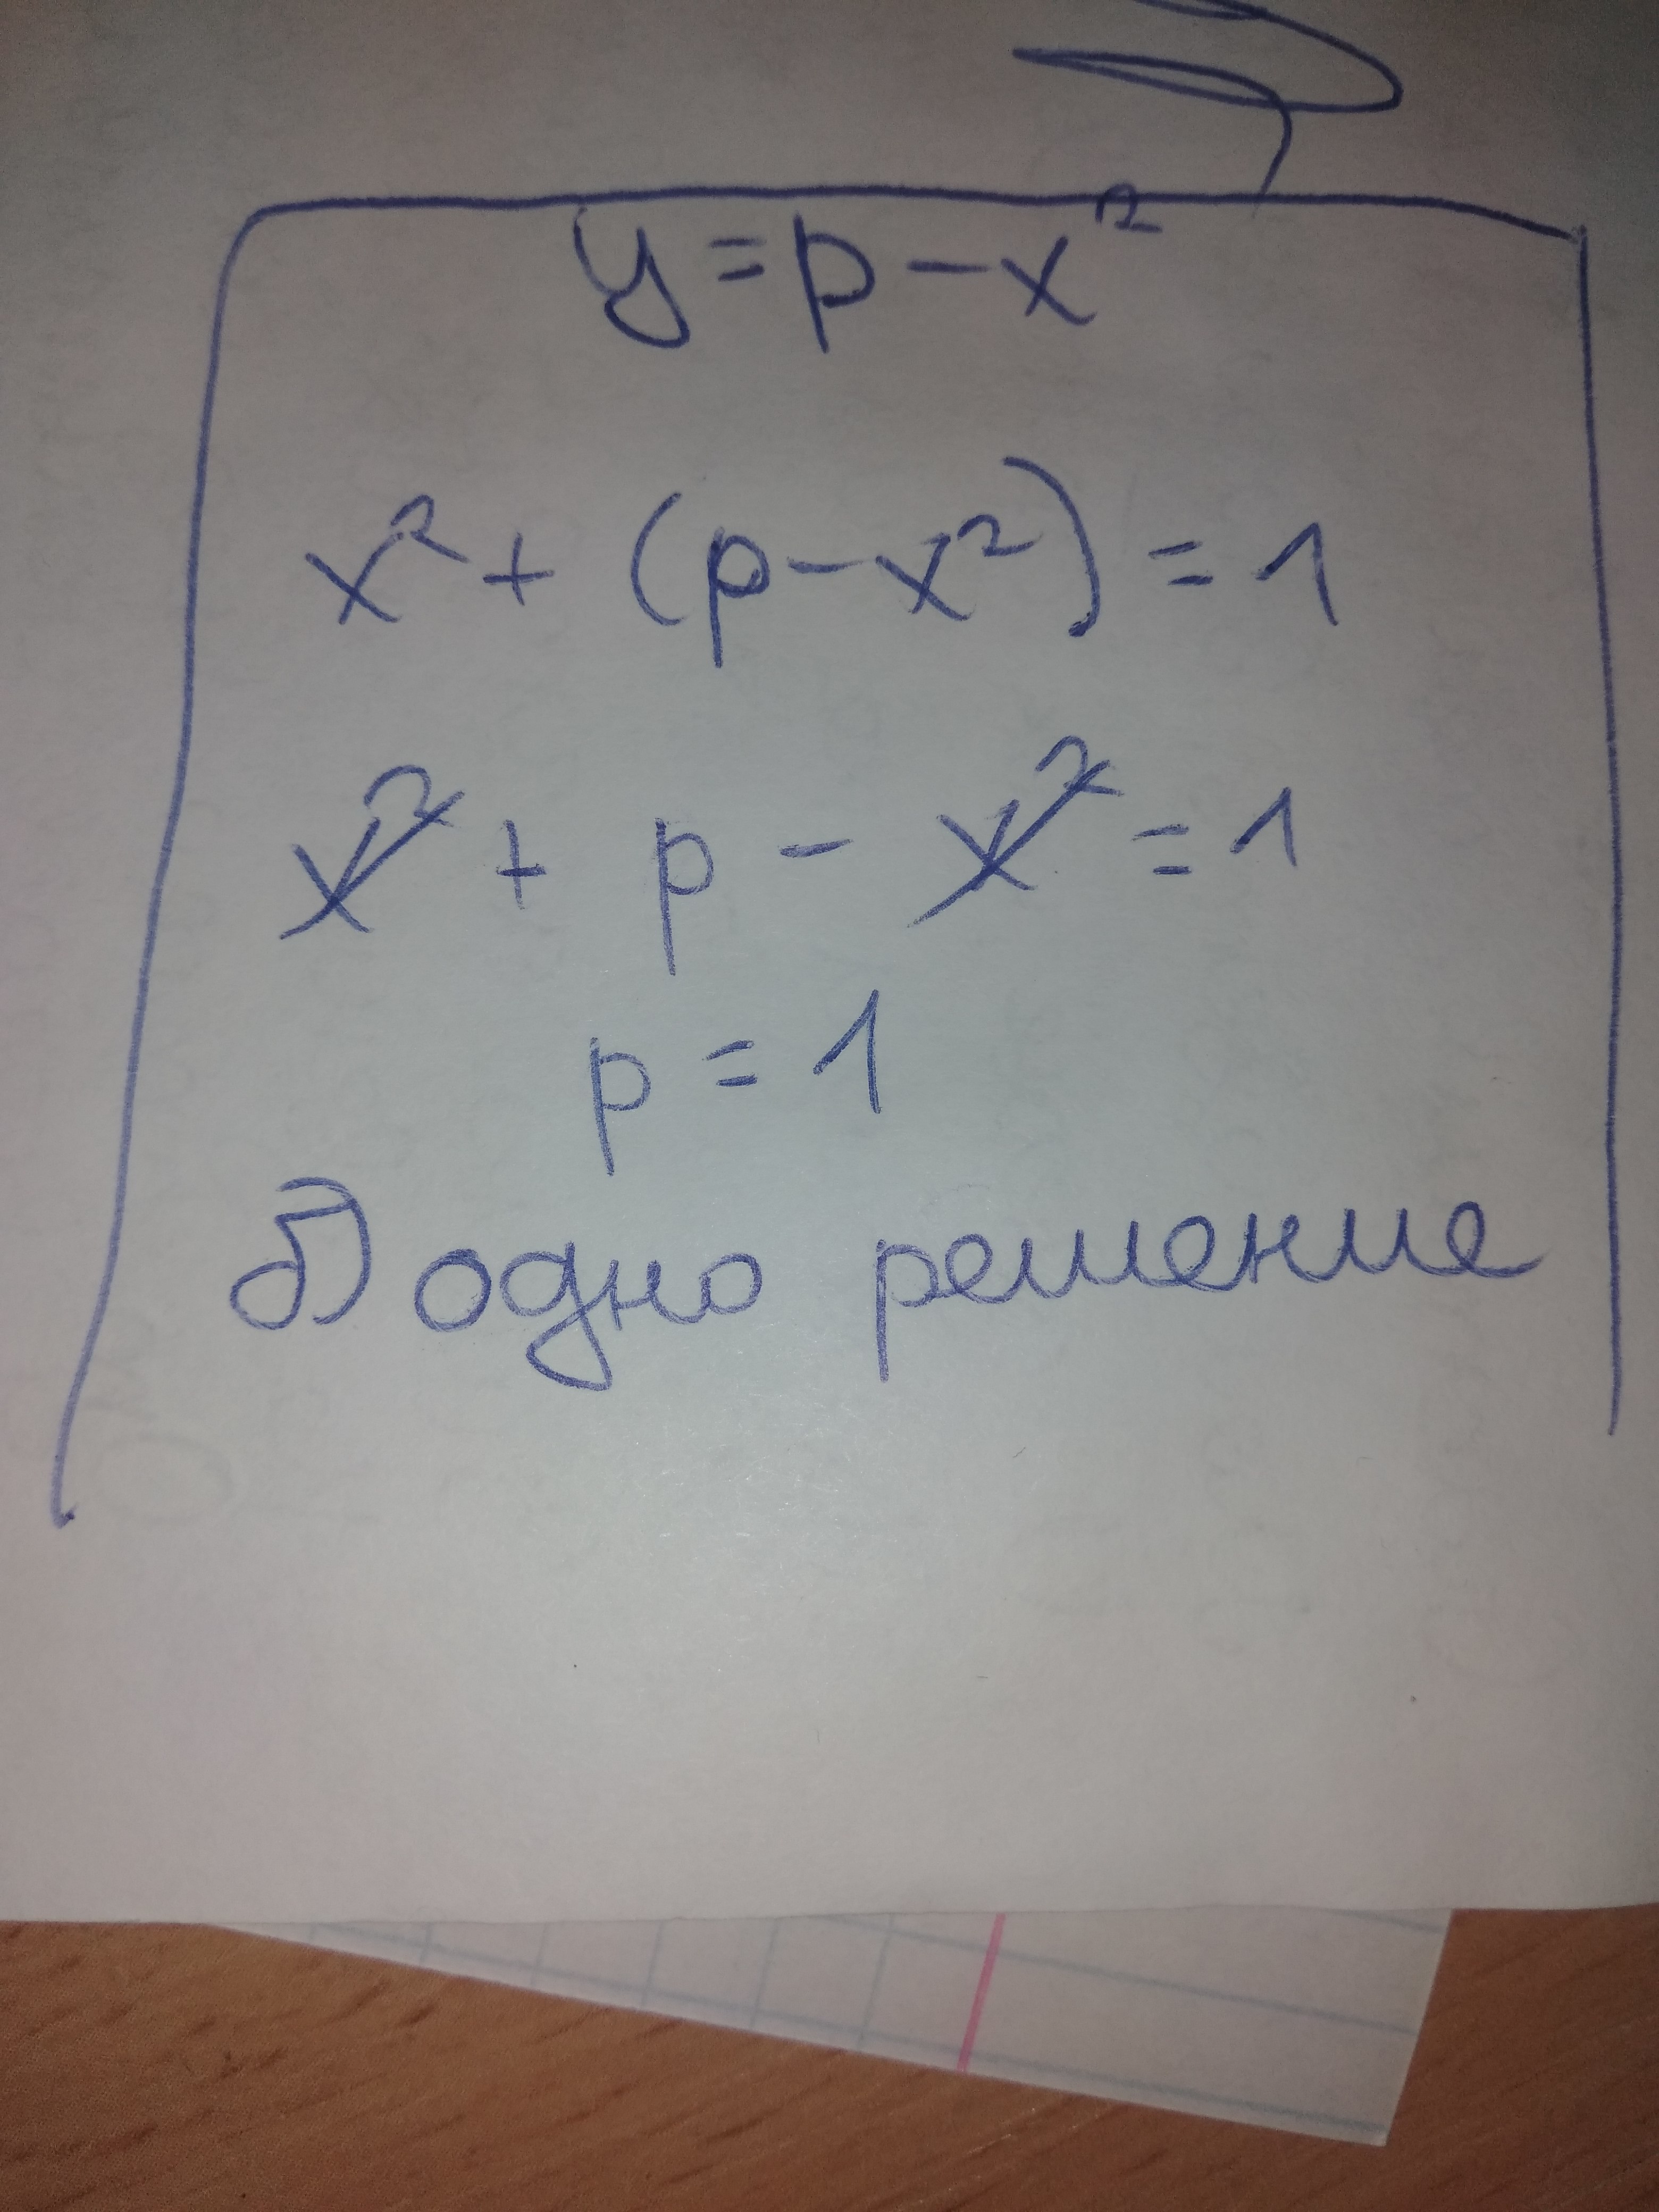 y = p - x²
x² + (p - x²) = 1
x² + p - x² = 1
p = 1
б) одно решение